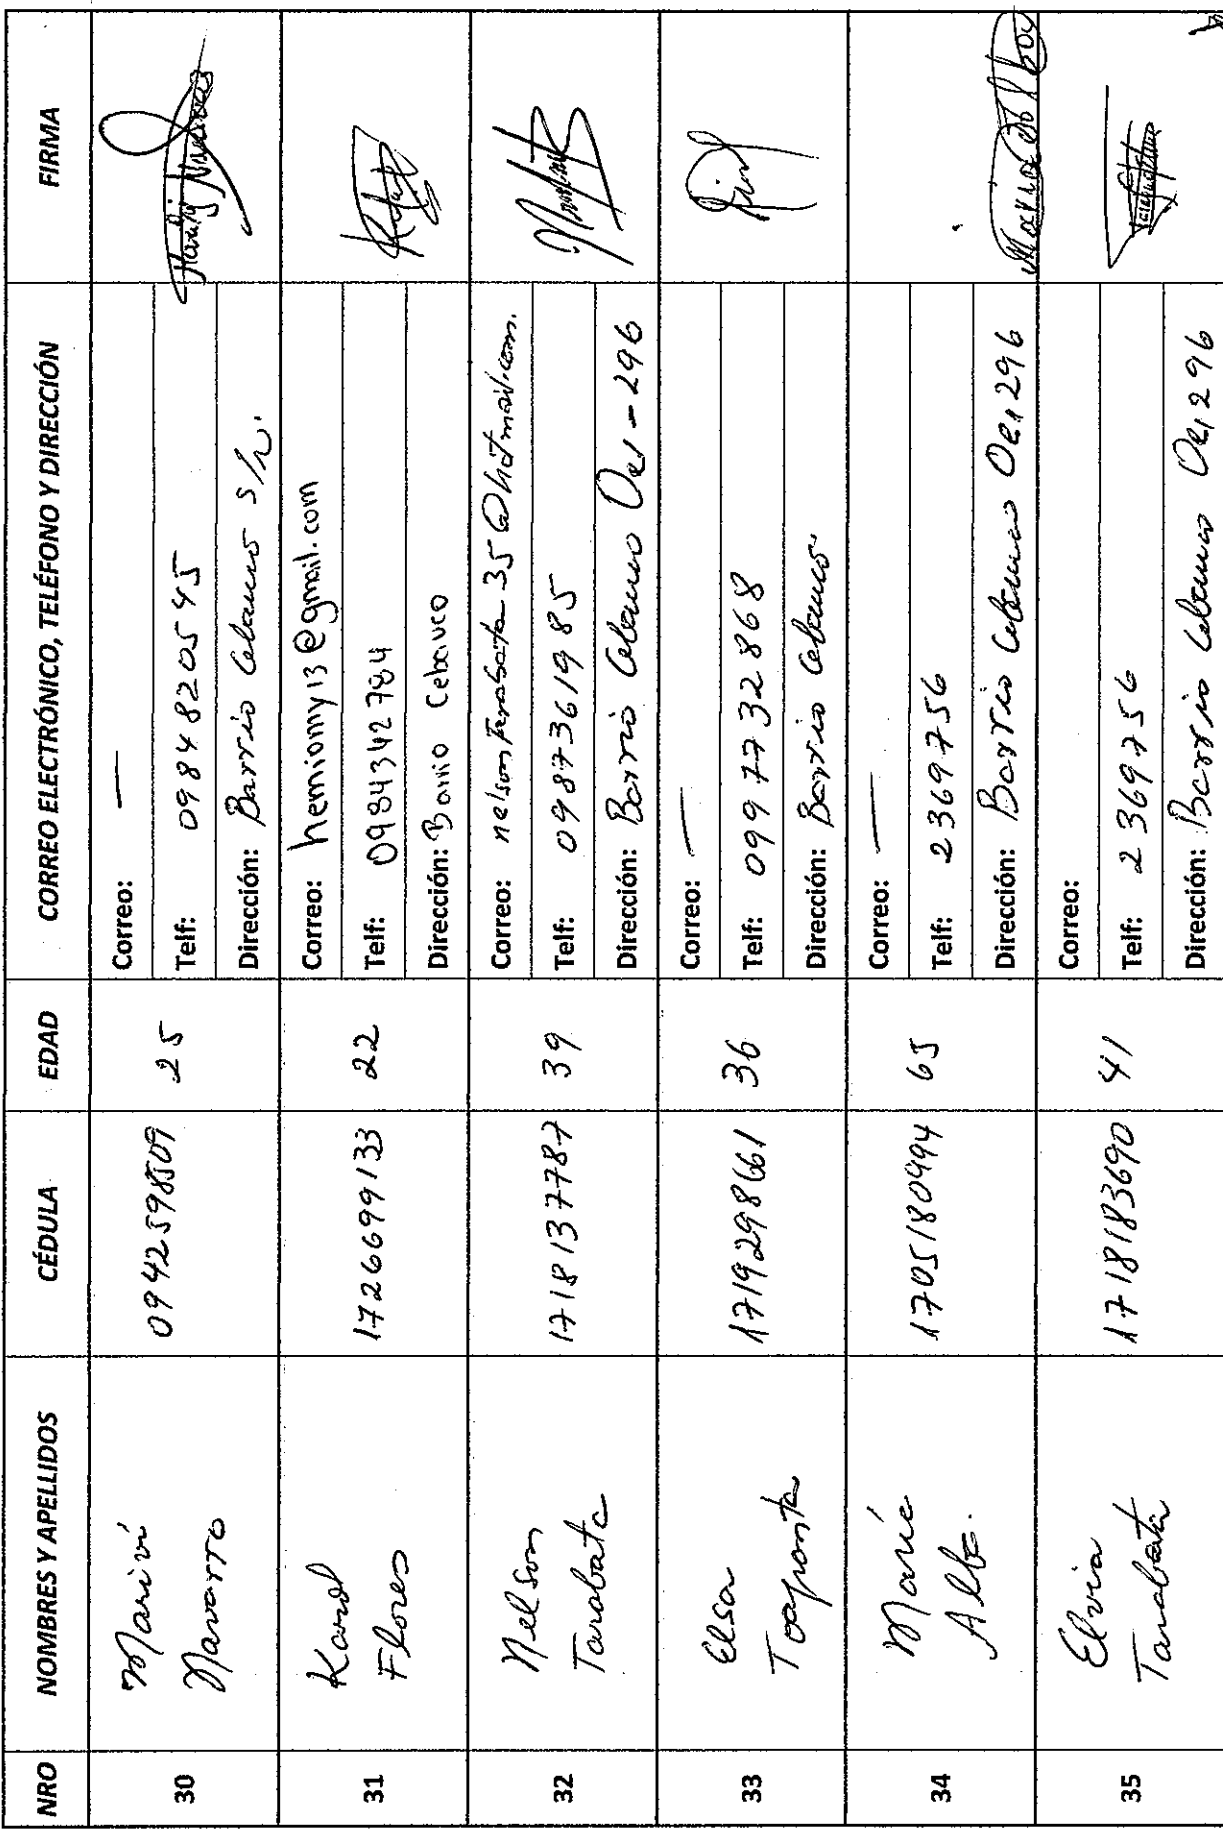 NRO NOMBRES Y APELLIDOS CÉDULA EDAD CORREO ELECTRÓNICO, TELÉFONO Y DIRECCIÓN FIRMA
30
Mariví
Navarro
0942598509
25
Correo: —
Telf: 0984820545
Dirección: Barrio Cebauco s/n.
31
Karol
Flores
1726699133
22
Correo: hemionny13@gmail.com
Telf: 0984342784
Dirección: Barrio Cebauco
32
Nelson
Tarabata
1718137787
39
Correo: nelsontarabata35@hotmail.com.
Telf: 0987361985
Dirección: Barrio Cebauco Oe1-296
33
Elsa
Toapanta
1719298661
36
Correo: —
Telf: 0997732868
Dirección: Barrio Cebauco.
34
María
Alba.
1705180494
65
Correo: —
Telf: 2369756
Dirección: Barrio Cebauco Oe1296
35
Elvia
Tarabata
1718183690
41
Correo:
Telf: 2369756
Dirección: Barrio Cebauco Oe1296